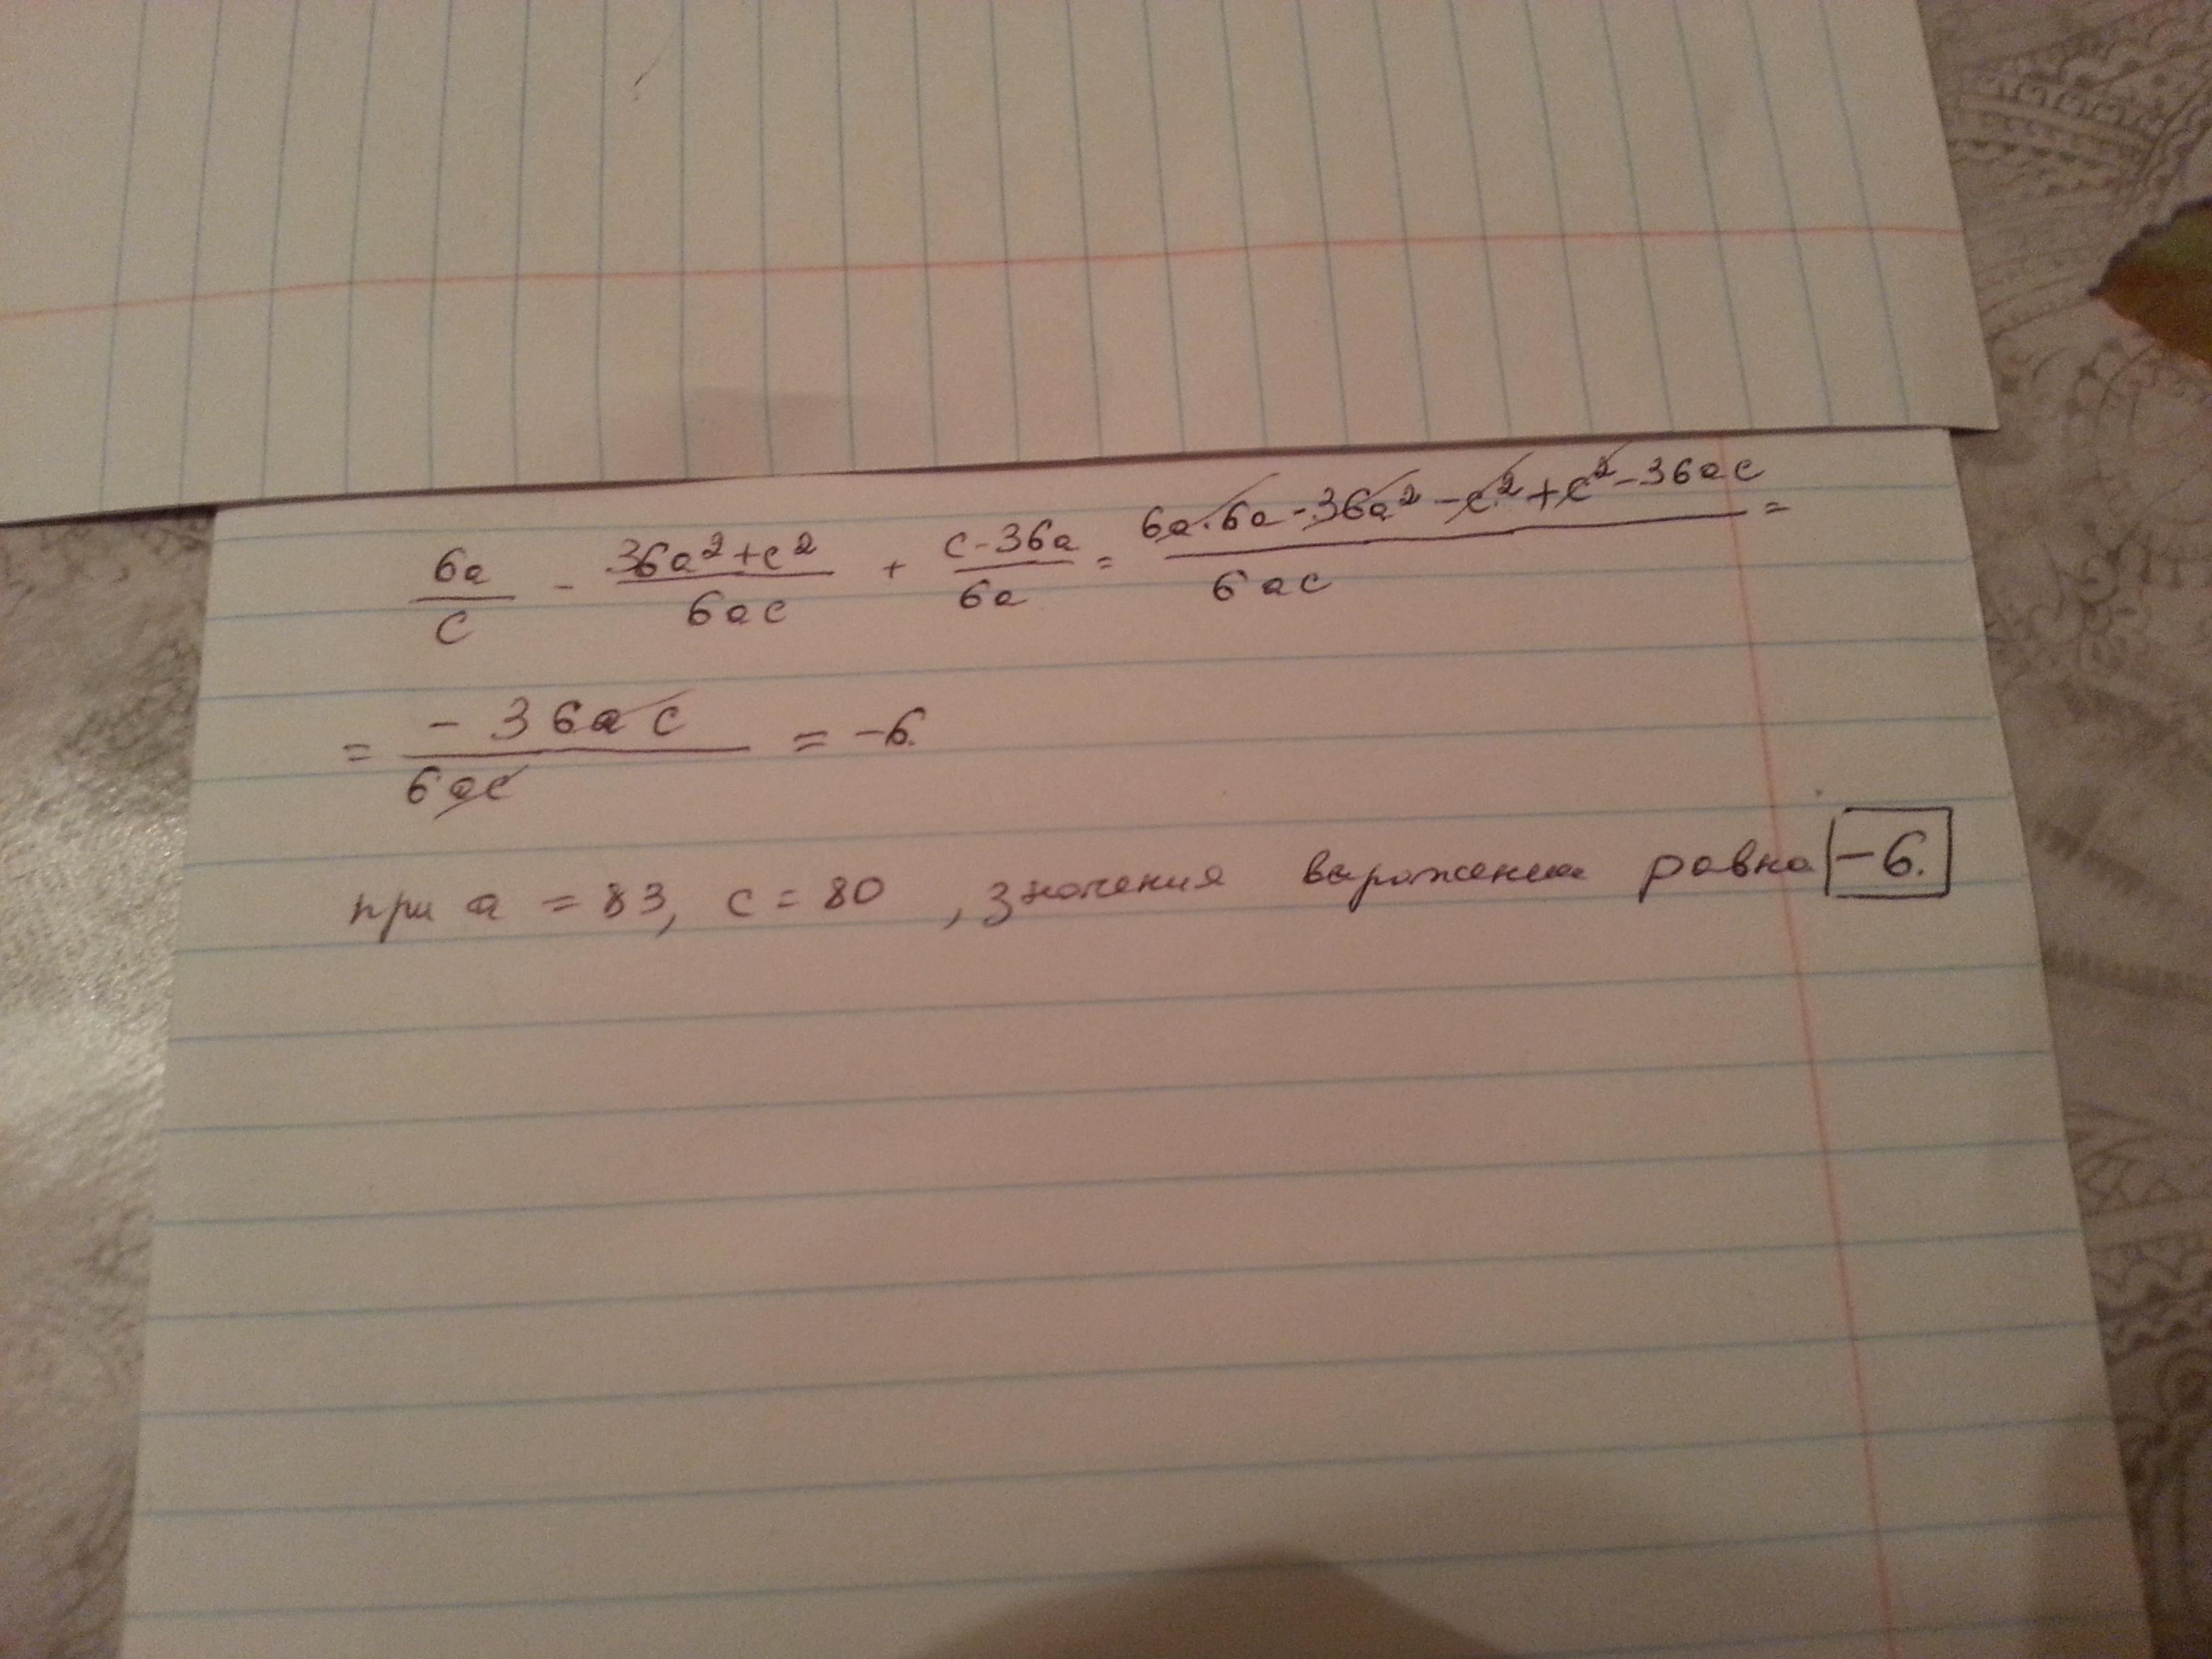 6a/c - 36a²+c²/6ac + c-36a/6a = 6a·6a-36a²-c²+c²-36ac/6ac =
= -36ac/6ac = -6.
при a = 83, c = 80 , значения выражения равна -6.